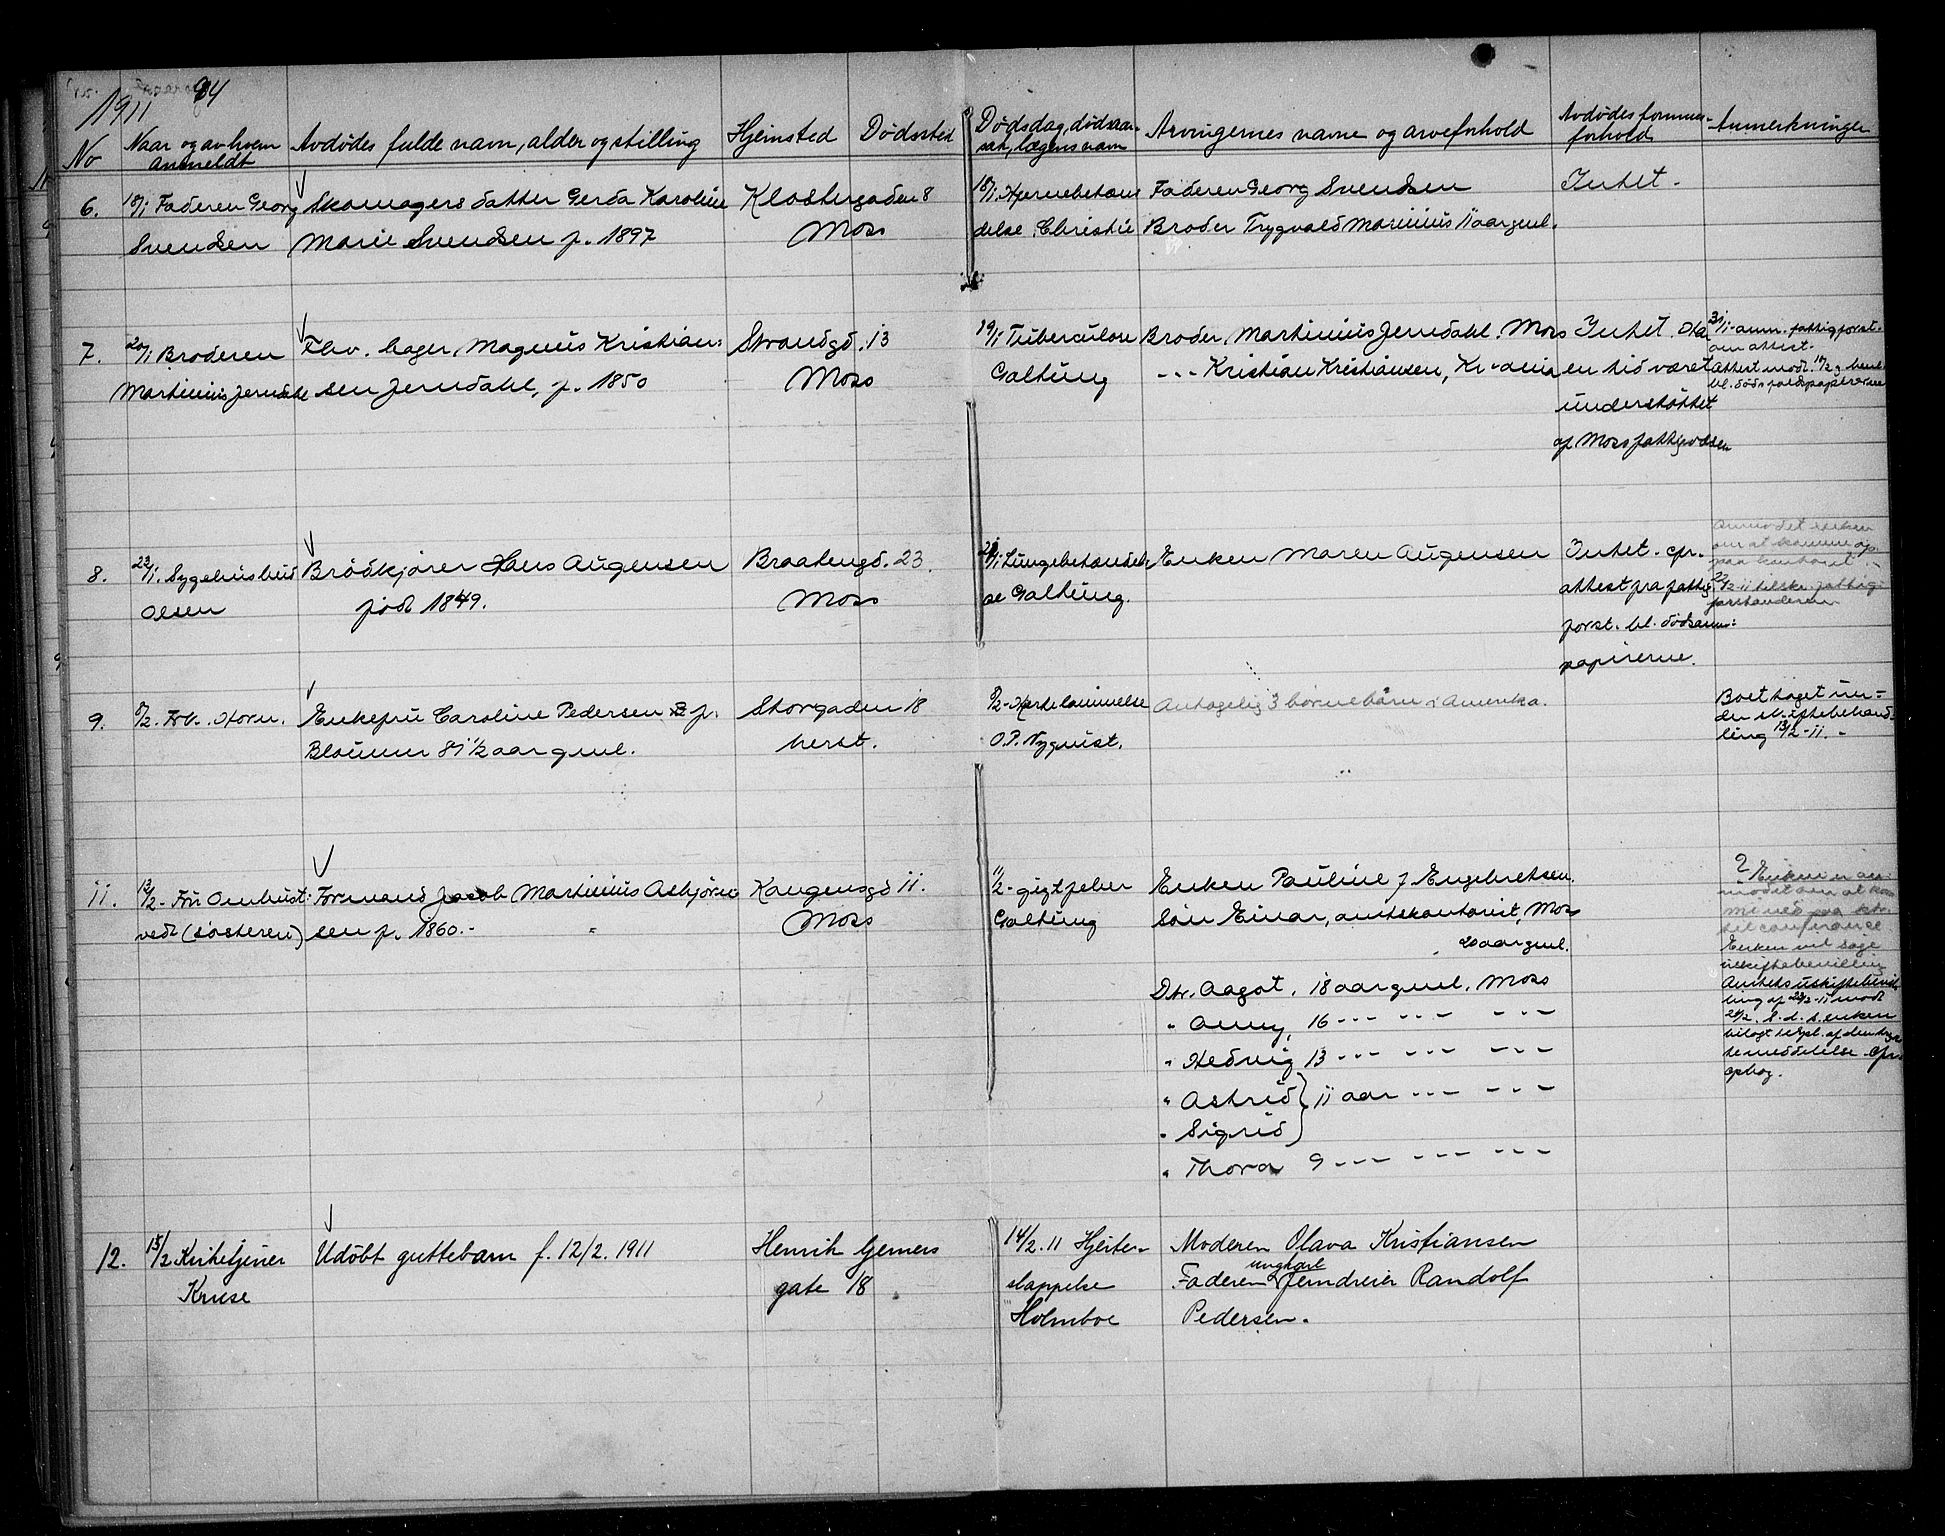 94
1911
No
Naar og av hvem anmeldt
Avdødes fulde navn, alder og stilling
Hjemsted
Dødssted
Dødsdag, dødsaar-
sak, lægens navn
Arvingernes navne og arveforhold
Avdødes formues-
forhold
Anmerkninger
6.
18/1 Faderen Georg
Svendsen
Skomagers datter Gerda Karoline
Marie Svendsen f. 1897
Klostergaden 8
Moss
18/1 Hjernebetæn
delse Christie
Faderen Georg Svendsen
Broder Trygvald Marinius 11 aar gml.
Intet.
7.
20/1 Broderen
Martinius Jerndahl
Fhv. bager Magnus Kristian-
sen Jerndahl, f. 1850
Strandgd. 13
Moss
19/1 Tuberculose
Galtung
Broder Martinius Jerndahl, Moss
- - - Kristian Kristiansen, Kr-ania
Intet. Har
en tid været
understøttet
af Moss fattigvæsen
31/1 anm. fattigforst.
om attest.
Attest modt.
bl. dødsfaldspapirerne
8.
22/1. Sygehusbud
Olsen
Brødkjører Hans Augensen
født 1849.
Braatengd. 23.
Moss
21/1 Lungebetændel-
se Galtung.
Enken Maren Augensen
Intet. cfr.
attest fra fattig
forst. bl. dødsanm:
papirerne.
Anmodet enken
om at komme op
paa kontoret.
22/2-11 tilskr. fattig-
forstanderen
9.
8/2. Frk. Horn.
Enkefru Caroline Pedersen f.
Blaumer 81 1/2 aar gml.
Storgaden 18
herst.
8/2-Hjertelammelse
O.P. Nyquist.
Antagelig 3 børnebørn i Amerika.
Boet taget un-
der skiftebehand-
ling 13/2-11. -
11.
13/2- Fru Omhust-
vedt (søsteren)
Formand Jacob Martinius Asbjørn-
sen f. 1860.-
Kongensgd 11.
Moss
11/2-gigtfeber
Galtung
Enken Pauline f Engebretsen.
Søn Einar, amtskontorist, Moss
20 aar gml.
Dtr. Aagot, 18 aar gml. Moss
" Anny, 16 - - - - - - - - -
" Hedvig 13 - - - - - - - - -
" Astrid } 11 aar - - - - - -
" Sigrid
" Thora 9 - - - - - - - - -
? Enken er an-
modet om at kom
me ned paa ktr.
til conferance.
Enken vil søge
uskiftebevilling
Amtets uskiftebevil-
ling af 22/2-11 modt
24/2. S. d. s. enken
bilagt 1 expl. af den tryk
te meddelelse. cfr.
kopbog.
12.
15/2 Kirketjener
Kruse
Udøbt guttebarn f. 12/2. 1911
Henrik Gerners
gate 18
14/2. 11 Hjerte-
slappelse
Holmboe
Moderen Olava Kristiansen
ungkarl
Faderen Jerndreier Randolf
Pedersen.